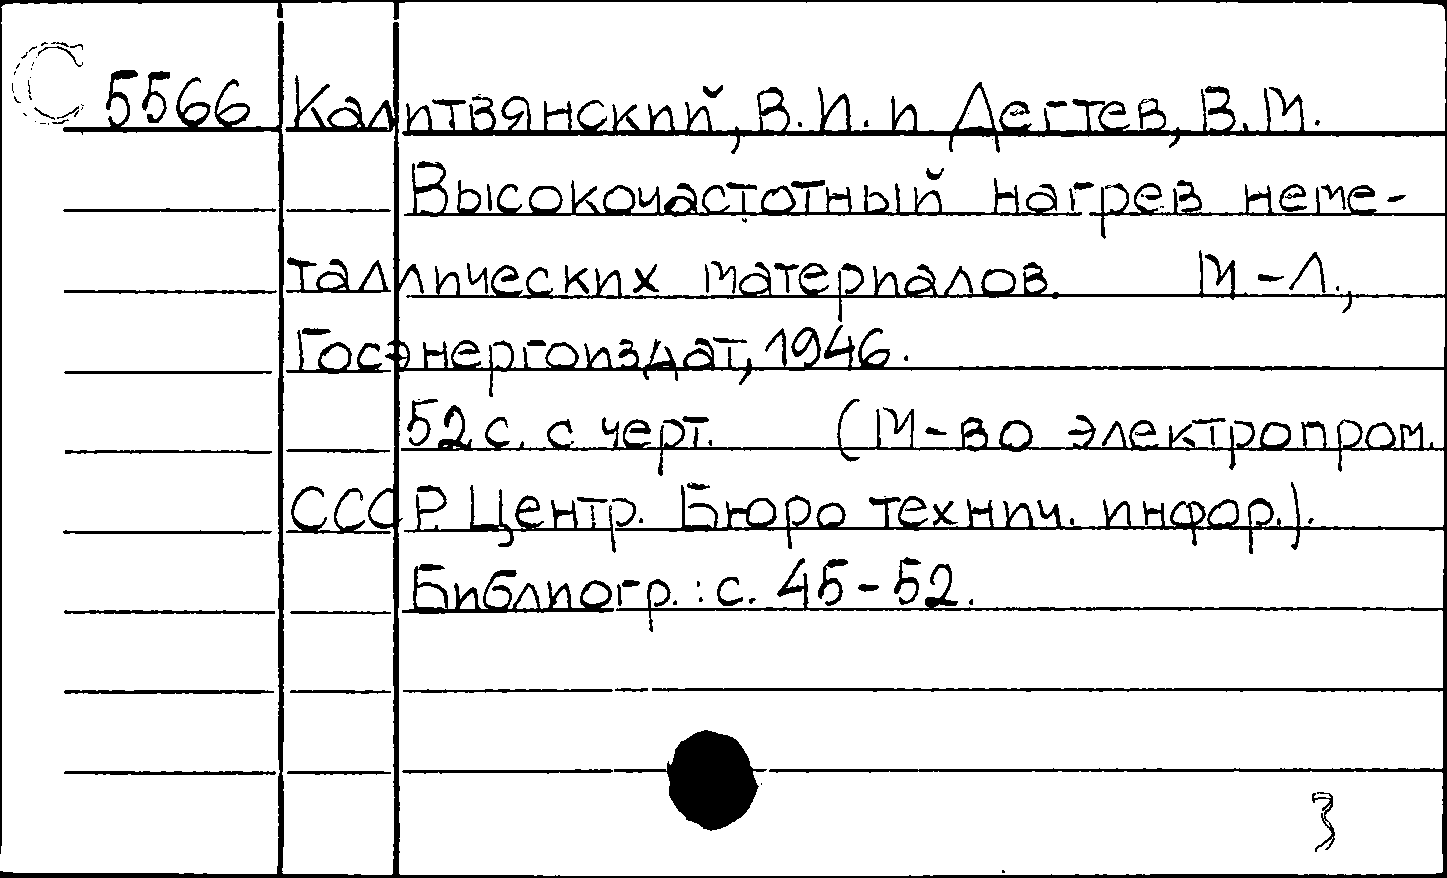 С 5566 Калитвянский, В.И. и Дегтев, В.М.
Высокочастотный нагрев неме-
таллических материалов. М-Л.,
Госэнергоиздат, 1946.
52 с. с черт. (М-во электропром.
СССР. Центр. Бюро технич. инфор.).
Библиогр.: с. 45-52.
3